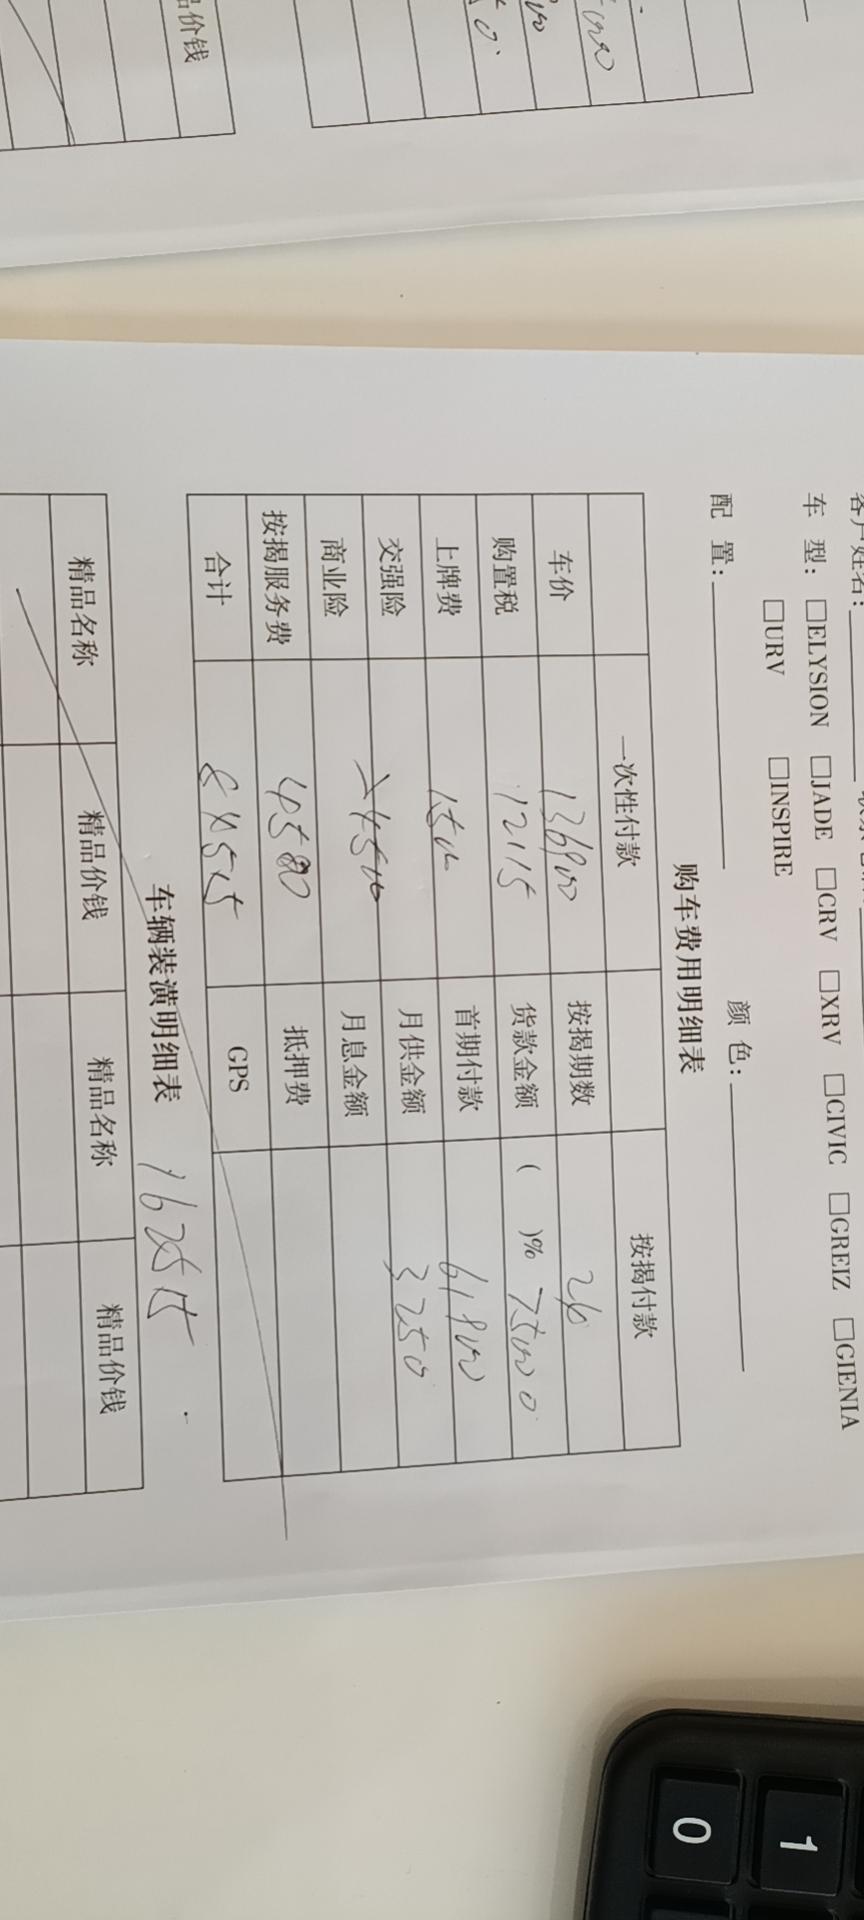 价钱
客户姓名：
车 型： □ELYSION □JADE □CRV □XRV □CIVIC □GREIZ □GIENIA
□URV □INSPIRE
配 置： 颜 色：
购车费用明细表
一次性付款 按揭付款
车价 136900 按揭期数
购置税 12115 货款金额 ( )% 75000
上牌费 1500 首期付款 61900
交强险 月供金额 3250
商业险 月息金额
按揭服务费 4500 抵押费
合计 GPS
车辆装潢明细表 162515
精品名称 精品价钱 精品名称 精品价钱
1
0